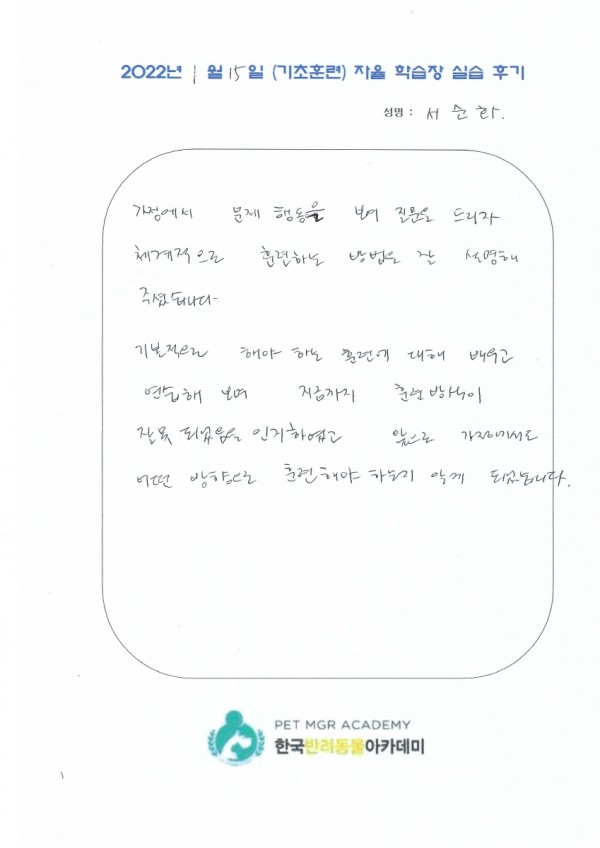 2022년 1월 15일 (기초훈련) 자율 학습장 실습 후기
성명 : 서순화.
가정에서 문제 행동을 보여 질문을 드리자
체계적으로 훈련하는 방법을 잘 설명해
주셨습니다.
기본적으로 해야 하는 훈련에 대해 배우고
연습해 보며 지금까지 훈련 방식이
잘못 되었음을 인지하였고 앞으로 가정에서도
어떤 방향으로 훈련해야 하는지 알게 되었습니다.
PET MGR ACADEMY
한국반려동물아카데미